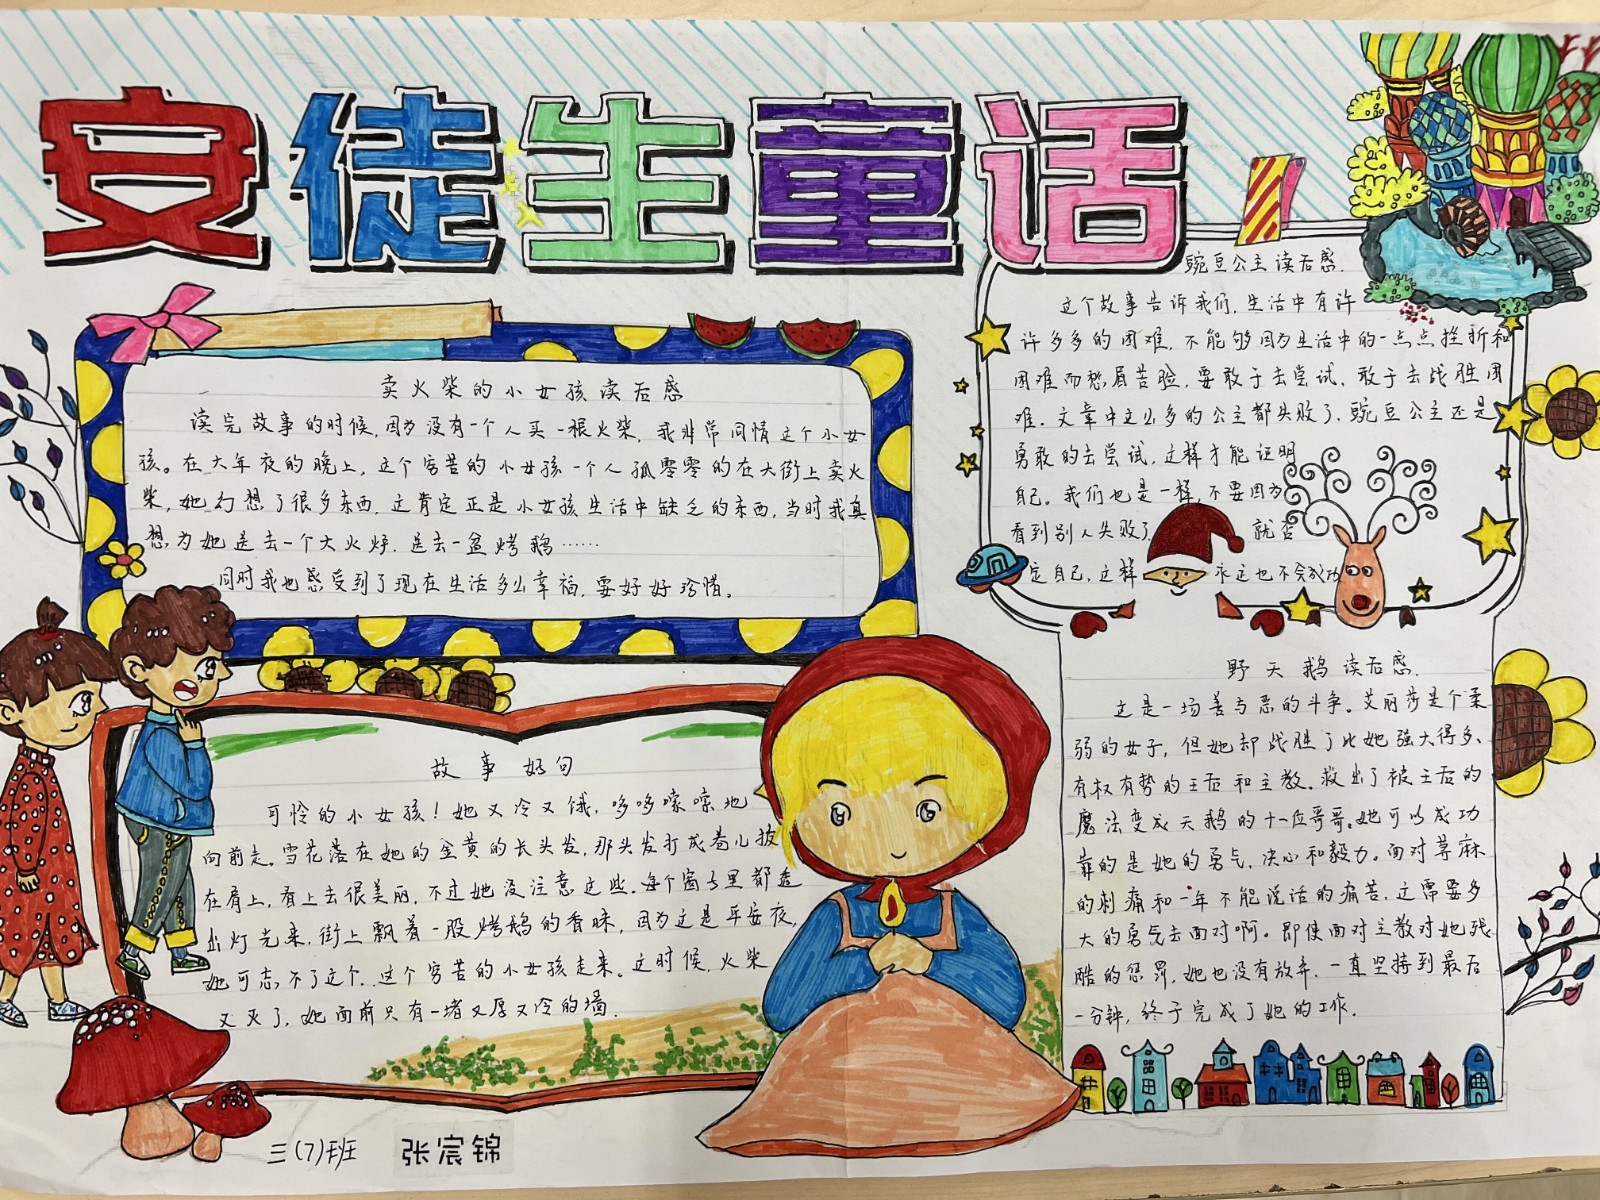 安徒生童话
卖火柴的小女孩读后感
读完故事的时候,因为没有一个人买一根火柴,我非常同情这个小女
孩。在大年夜的晚上,这个穷苦的小女孩一个人孤零零的在大街上卖火
柴,她幻想了很多东西,这肯定正是小女孩生活中缺乏的东西,当时我真
想为她送去一个大火炉,送去一盆烤鹅……
同时我也感受到了现在生活多么幸福,要好好珍惜。
故事好句
可怜的小女孩!她又冷又饿,哆哆嗦嗦地
向前走。雪花落在她的金黄的长头发,那头发打成卷儿披
在肩上,看上去很美丽,不过她没注意这些。每个窗子里都透
出灯光来,街上飘着一股烤鹅的香味,因为这是平安夜,
她可忘不了这个.这个穷苦的小女孩走来。这时候,火柴
又灭了,她面前只有一堵又厚又冷的墙.
三(7)班 张宸锦
豌豆公主读后感.
这个故事告诉我们,生活中有许
许多多的困难,不能够因为生活中的一点点挫折和
困难而愁眉苦脸,要敢于去尝试、敢于去战胜困
难.文章中这么多的公主都失败了,豌豆公主还是
勇敢的去尝试,这样才能证明
自己。我们也是一样,不要因为
看到别人失败了 就否
定自己,这样 永远也不会成功
野天鹅读后感.
这是一场善与恶的斗争。艾丽莎是个柔
弱的女子,但她却战胜了比她强大得多、
有权有势的王后和主教.救出了被王后的
魔法变成天鹅的十一位哥哥。她可以成功
靠的是她的勇气,决心和毅力。面对荨麻
的刺痛和一年不能说话的痛苦,这需要多
大的勇气去面对啊。即使面对主教对她残
酷的惩罚,她也没有放弃,一直坚持到最后
一分钟,终于完成了她的工作.